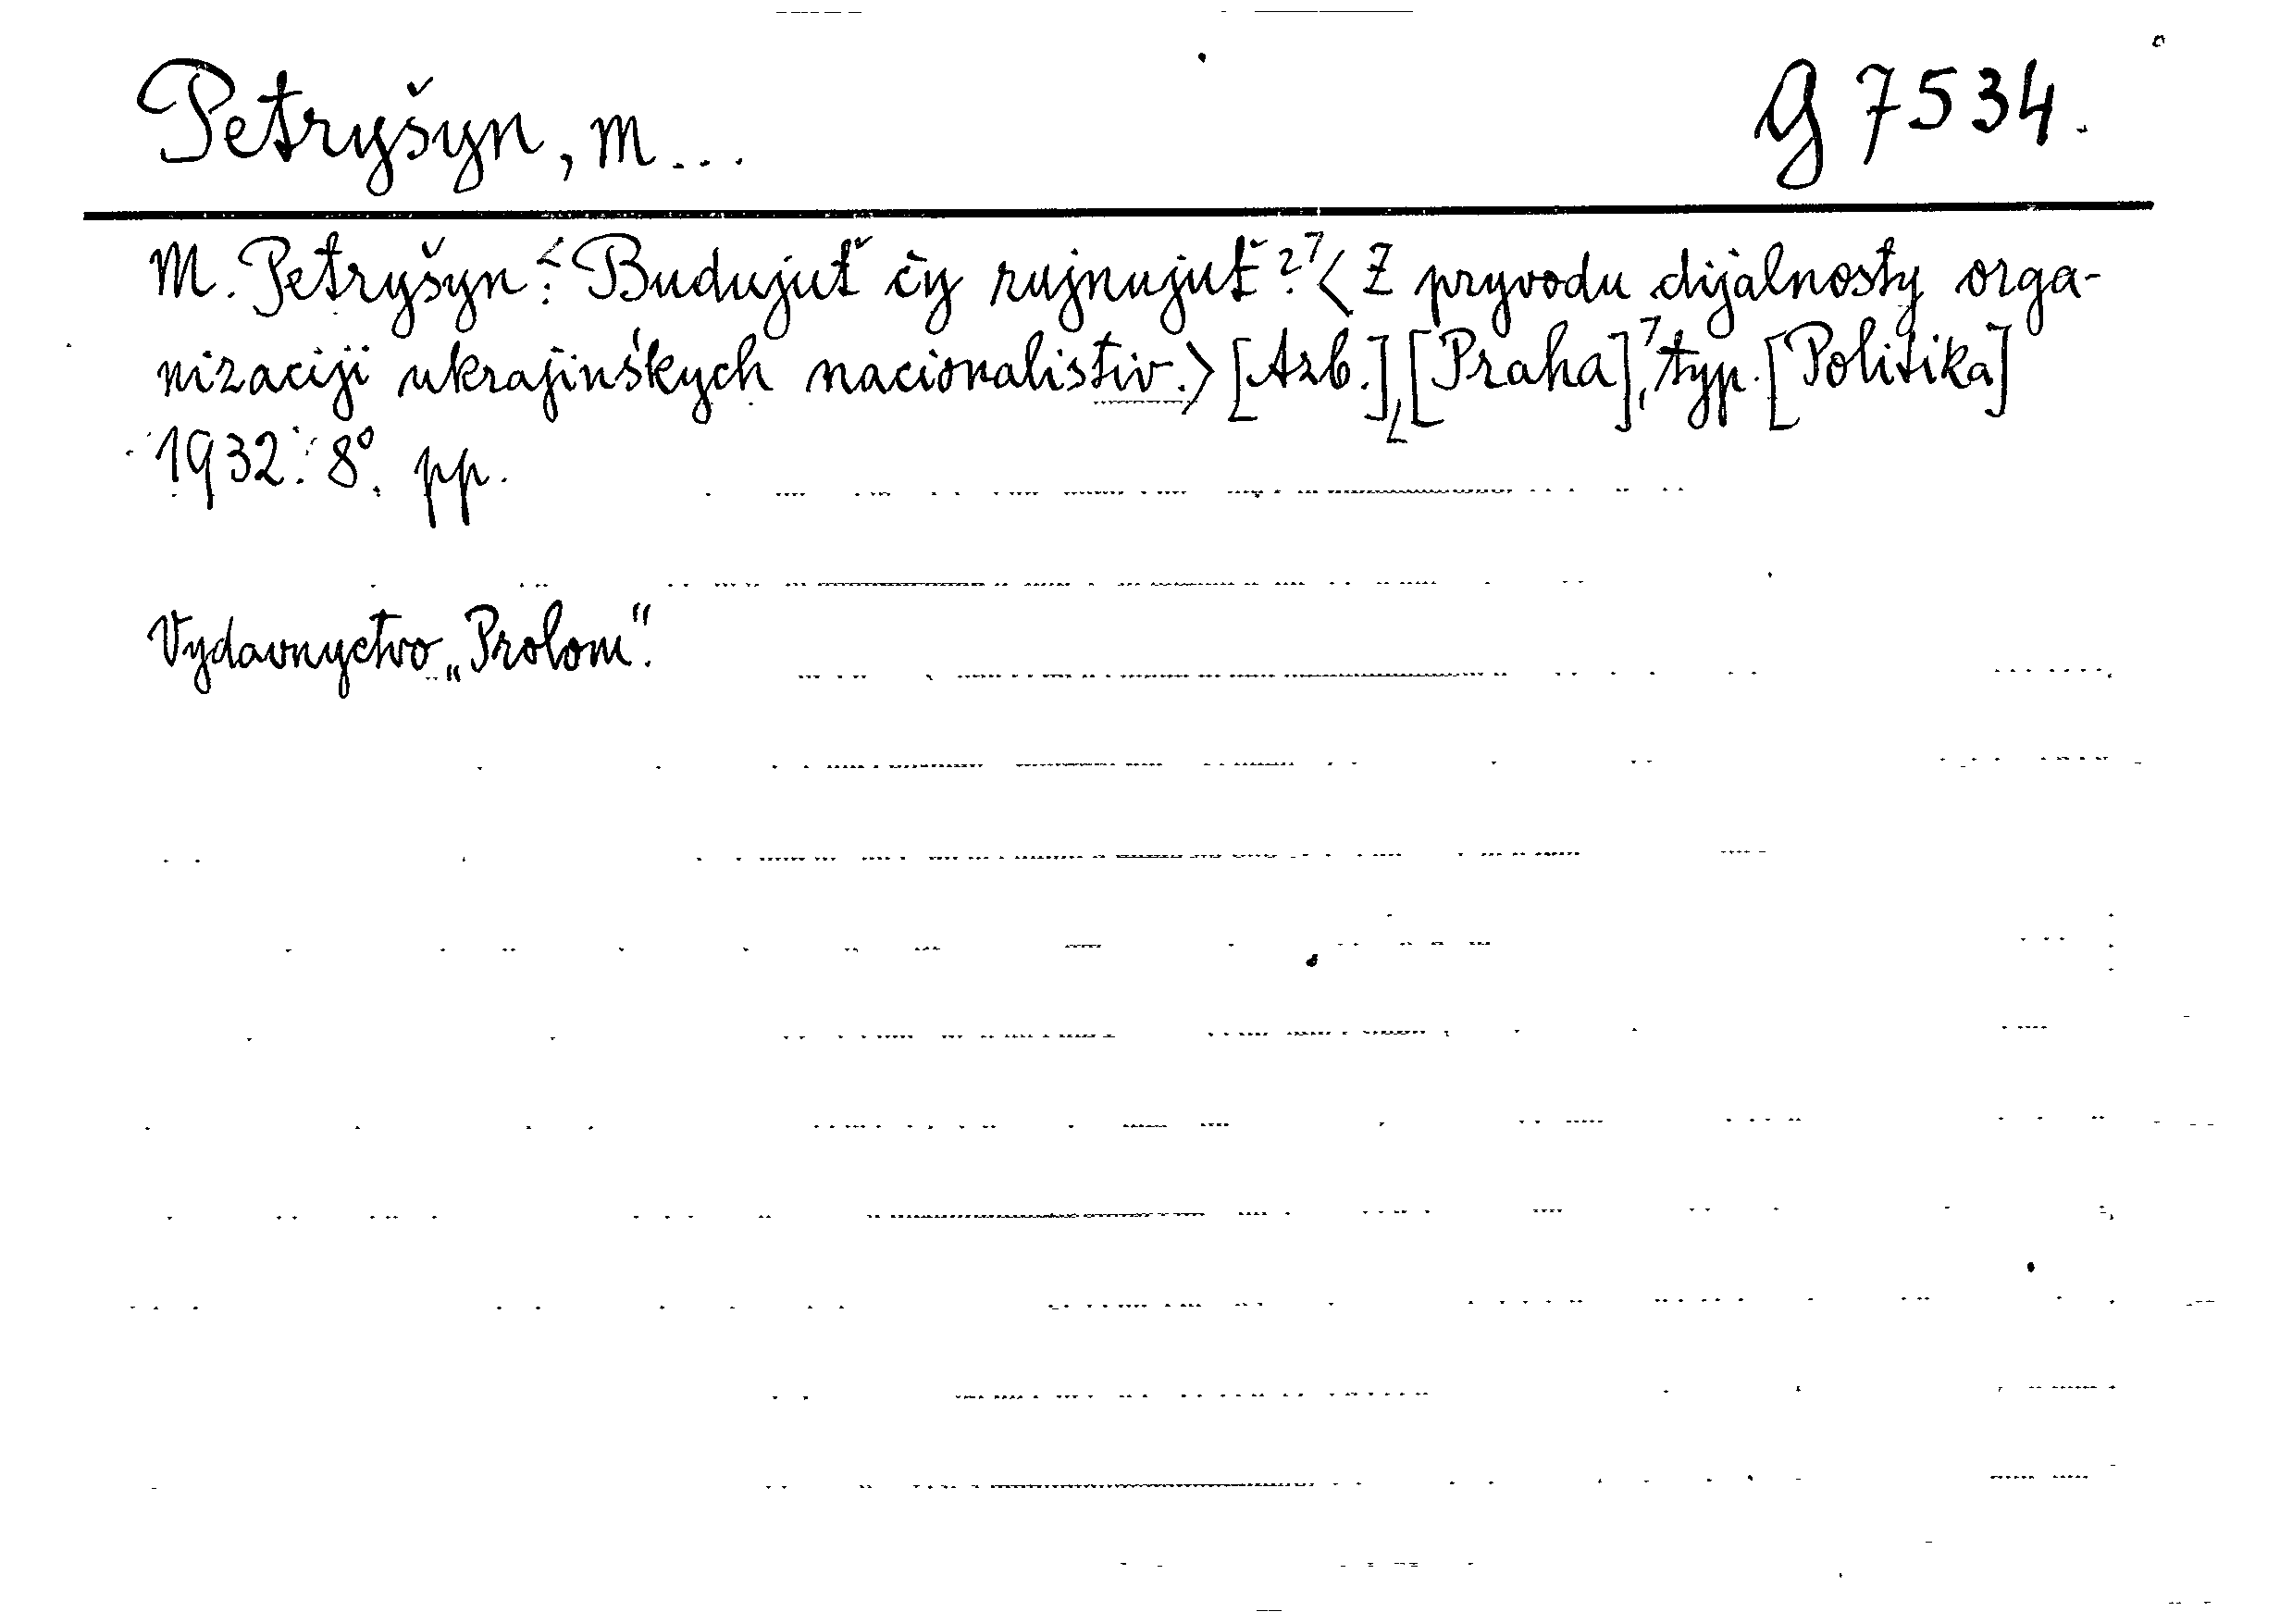 Petryšyn, M...
G 7534.
M. Petryšyn: Budujuť čy rujnujuť? < Z pryvodu dijalnosty orga-
nizaciji ukrajinśkych nacionalistiv.> [Azb.] [Praha], typ. [Politika]
1932. 8°. pp.
Vydavnyctvo „Prolom“.